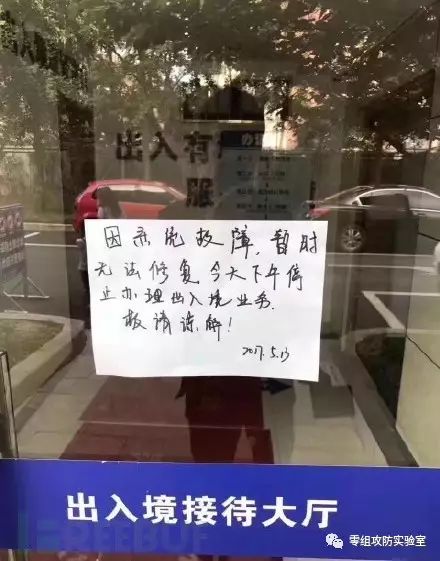 出入有
办
服
因系统故障,暂时
无法修复,今天下午停
止办理出入境业务.
敬请谅解!
2017.5.13
出入境接待大厅
FREEBUF
零组攻防实验室